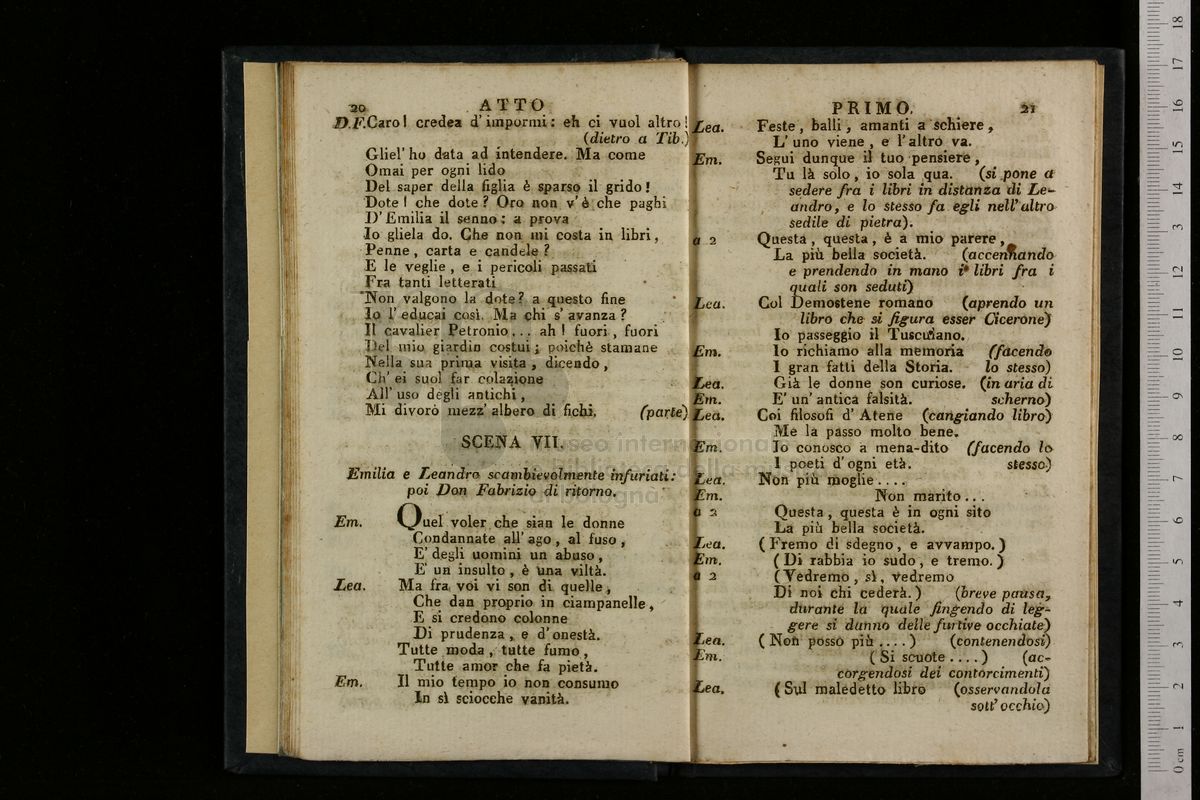 20 ATTO
D.F. Caro! credea d'impormi: eh ci vuol altro!
(dietro a Tib.)
Gliel' ho data ad intendere. Ma come
Omai per ogni lido
Del saper della figlia è sparso il grido!
Dote! che dote? Oro non v'è che paghi
D'Emilia il senno: a prova
Io gliela do. Che non mi costa in libri,
Penne, carta e candele?
E le veglie, e i pericoli passati
Fra tanti letterati
Non valgono la dote? a questo fine
Io l'educai così. Ma chi s'avanza?
Il cavalier Petronio... ah! fuori, fuori
Del mio giardin costui; poichè stamane
Nella sua prima visita, dicendo,
Ch' ei suol far colazione
All' uso degli antichi,
Mi divorò mezz' albero di fichi. (parte)
SCENA VII.
Emilia e Leandro scambievolmente infuriati:
poi Don Fabrizio di ritorno.
Em. Quel voler che sian le donne
Condannate all' ago, al fuso,
E' degli uomini un abuso,
E' un insulto, è una viltà.
Lea. Ma fra voi vi son di quelle,
Che dan proprio in ciampanelle,
E si credono colonne
Di prudenza, e d'onestà.
Tutte moda, tutte fumo,
Tutte amor che fa pietà.
Em. Il mio tempo io non consumo
In sì sciocche vanità.
PRIMO. 21
Lea. Feste, balli, amanti a schiere,
L'uno viene, e l'altro va.
Em. Segui dunque il tuo pensiere,
Tu là solo, io sola qua. (si pone a
sedere fra i libri in distanza di Le-
andro, e lo stesso fa egli nell'altro
sedile di pietra).
a 2 Questa, questa, è a mio parere,
La più bella società. (accennando
e prendendo in mano i libri fra i
quali son seduti)
Lea. Col Demostene romano (aprendo un
libro che si figura esser Cicerone)
Io passeggio il Tusculano.
Em. Io richiamo alla memoria (facendo
I gran fatti della Storia. lo stesso)
Lea. Già le donne son curiose. (in aria di
Em. E' un' antica falsità. scherno)
Lea. Coi filosofi d'Atene (cangiando libro)
Me la passo molto bene.
Em. Io conosco a mena-dito (facendo lo
I poeti d'ogni età. stesso.)
Lea. Non più moglie....
Em. Non marito...
a 2 Questa, questa è in ogni sito
La più bella società.
Lea. (Fremo di sdegno, e avvampo.)
Em. (Di rabbia io sudo, e tremo.)
a 2 (Vedremo, sì, vedremo
Di noi chi cederà.) (breve pausa,
durante la quale fingendo di leg-
gere si danno delle furtive occhiate)
Lea. (Non posso più....) (contenendosi)
Em. (Si scuote....) (ac-
corgendosi dei contorcimenti)
Lea. (Sul maledetto libro (osservandola
sott' occhio)